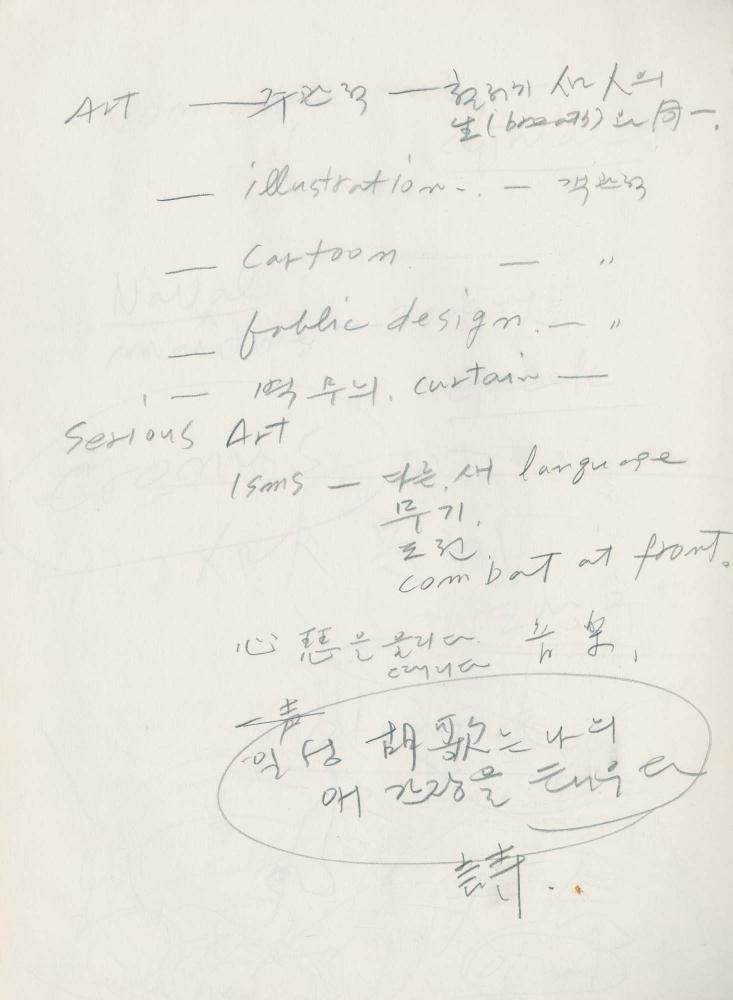 Art — 주관적 — 人의
生(breath) 同一.
— illustration — 객관적
— Cartoon — 〃
— public design. — 〃
— 벽 무늬. curtain —
Serious Art
Isms — 다른, 새 language
무기,
combat at front.
心 을 울리다 音楽,
때리다
일성 胡歌는 나의
애 간장을 태우다
詩.